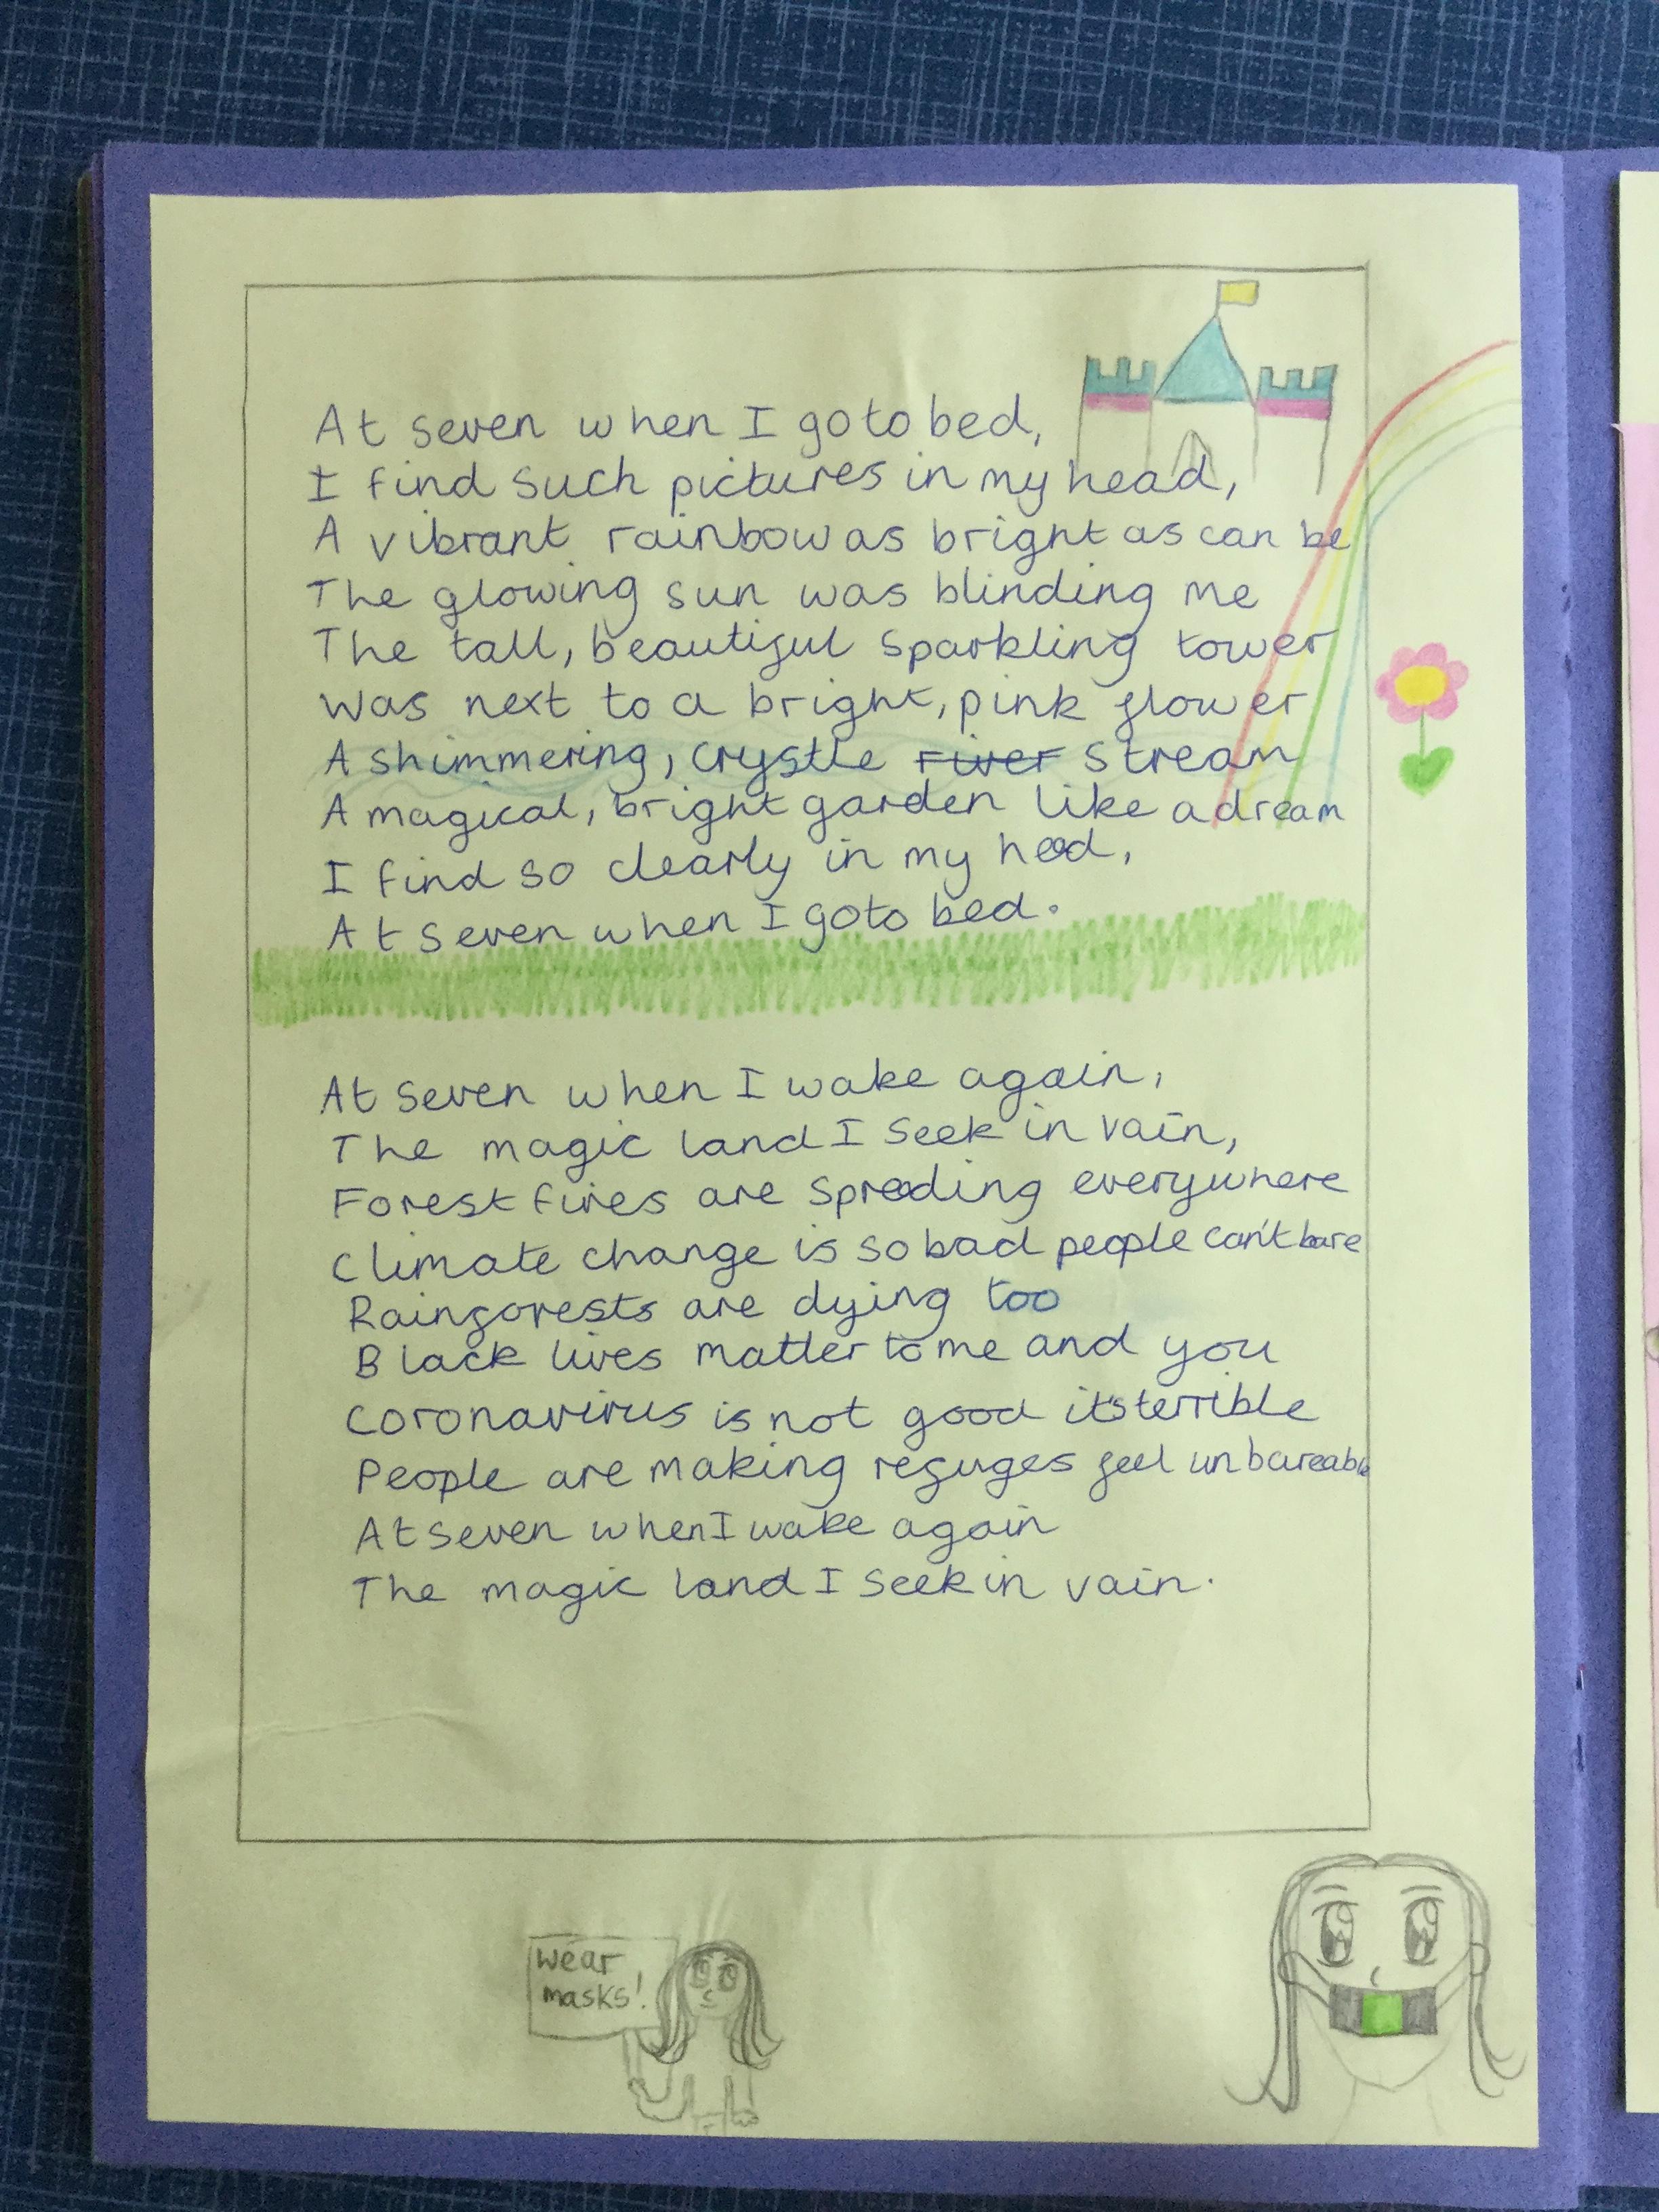 At seven when I go to bed,
I find such pictures in my head,
A vibrant rainbow as bright as can be
The glowing sun was blinding me
The tall, beautiful sparkling tower
Was next to a bright, pink flower
A shimmering, crystle river stream
A magical, bright garden like a dream
I find so clearly in my head,
At seven when I go to bed.
At seven when I wake again,
The magic land I seek in vain,
Forest fires are spreading everywhere
Climate change is so bad people can't bare
Rainforests are dying too
Black lives matter to me and you
Coronavirus is not good it's terrible
People are making refuges feel unbareable
At seven when I wake again
The magic land I seek in vain.
Wear
masks!